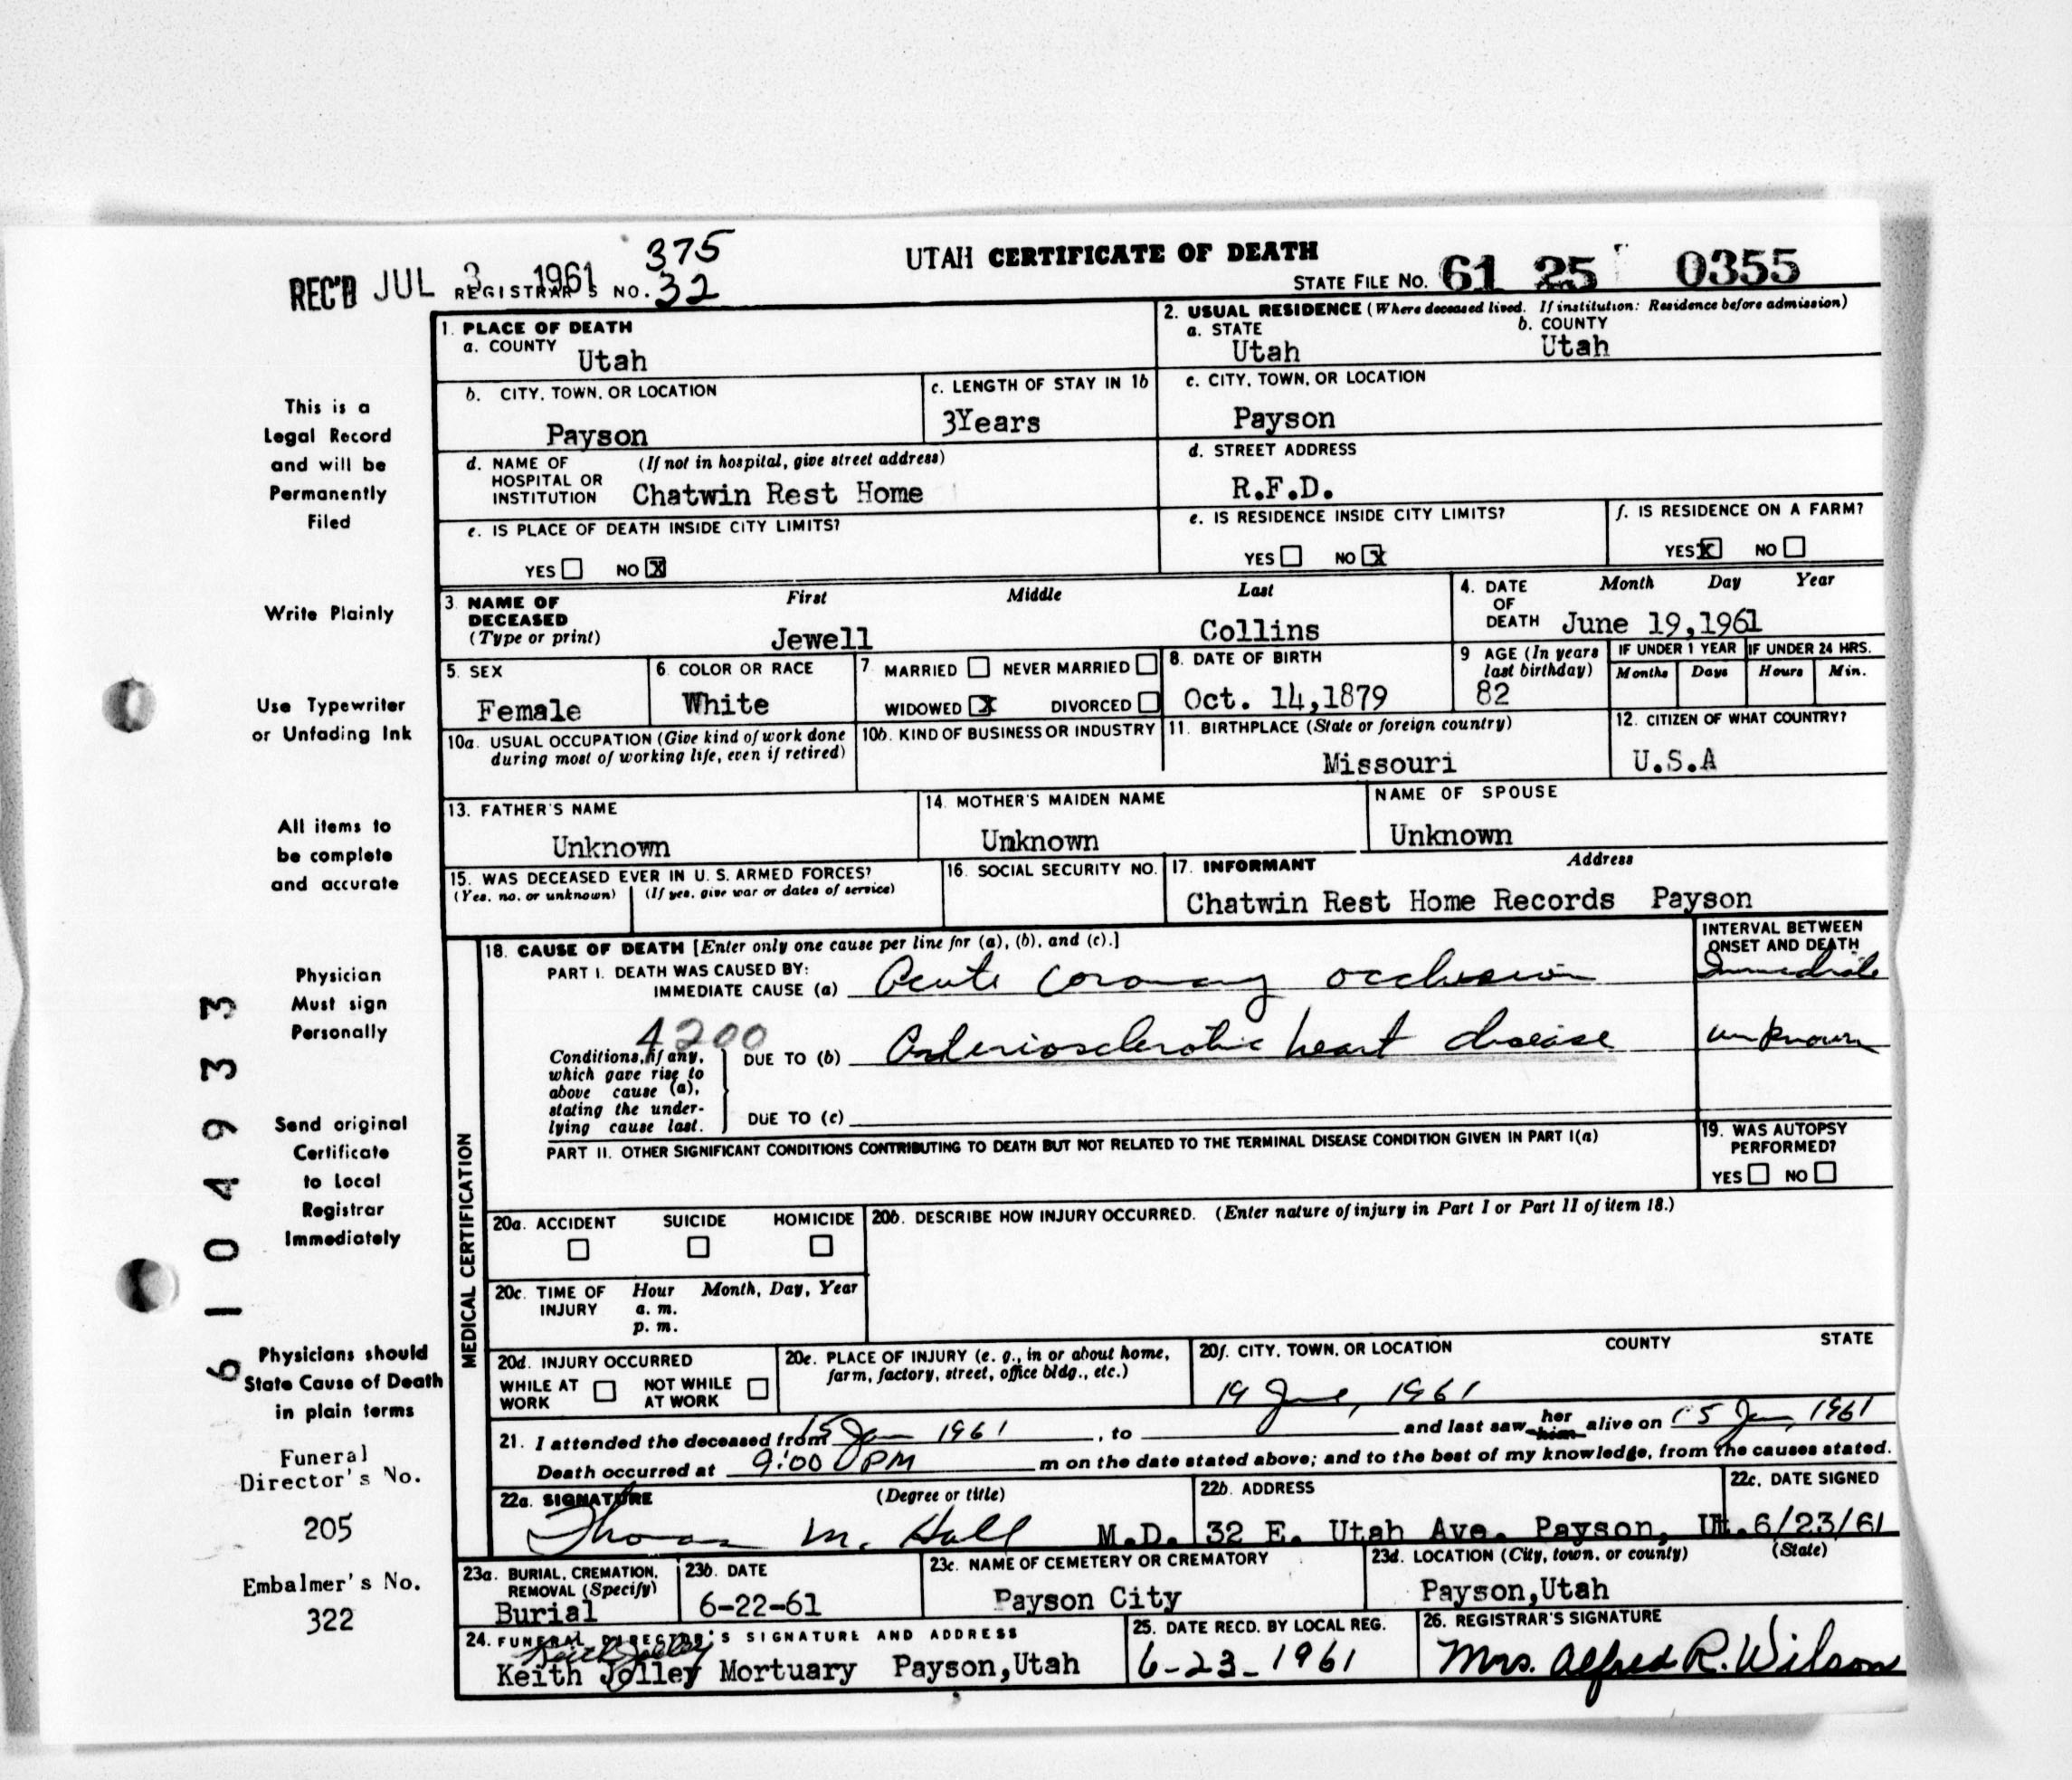 375
UTAH CERTIFICATE OF DEATH
REC'D JUL 3 1961 REGISTRAR'S NO. 32
STATE FILE NO. 61 25 0355
1. PLACE OF DEATH
a. COUNTY
Utah
2. USUAL RESIDENCE (Where deceased lived. If institution: Residence before admission)
a. STATE b. COUNTY
Utah Utah
b. CITY, TOWN, OR LOCATION
Payson
c. LENGTH OF STAY IN 1b
3Years
c. CITY, TOWN, OR LOCATION
Payson
d. NAME OF (If not in hospital, give street address)
HOSPITAL OR
INSTITUTION Chatwin Rest Home
d. STREET ADDRESS
R.F.D.
e. IS PLACE OF DEATH INSIDE CITY LIMITS?
YES NO X
e. IS RESIDENCE INSIDE CITY LIMITS?
YES NO X
f. IS RESIDENCE ON A FARM?
YES X NO
3. NAME OF First Middle Last
DECEASED
(Type or print) Jewell Collins
4. DATE Month Day Year
OF
DEATH June 19,1961
5. SEX
Female
6. COLOR OR RACE
White
7. MARRIED NEVER MARRIED
WIDOWED X DIVORCED
8. DATE OF BIRTH
Oct. 14,1879
9 AGE (In years
last birthday)
82
IF UNDER 1 YEAR IF UNDER 24 HRS.
Months Days Hours Min.
10a. USUAL OCCUPATION (Give kind of work done
during most of working life, even if retired)
10b. KIND OF BUSINESS OR INDUSTRY
11. BIRTHPLACE (State or foreign country)
Missouri
12. CITIZEN OF WHAT COUNTRY?
U.S.A
13. FATHER'S NAME
Unknown
14. MOTHER'S MAIDEN NAME
Unknown
NAME OF SPOUSE
Unknown
15. WAS DECEASED EVER IN U. S. ARMED FORCES?
(Yes, no, or unknown) (If yes, give war or dates of service)
16. SOCIAL SECURITY NO.
17. INFORMANT Address
Chatwin Rest Home Records Payson
MEDICAL CERTIFICATION
18. CAUSE OF DEATH [Enter only one cause per line for (a), (b), and (c).]
INTERVAL BETWEEN
ONSET AND DEATH
PART I. DEATH WAS CAUSED BY:
IMMEDIATE CAUSE (a) Acute coronary occlusion Immediate
4200
Conditions, if any,
which gave rise to
above cause (a),
stating the under-
lying cause last.
DUE TO (b) Arteriosclerotic heart disease unknown
DUE TO (c)
PART II. OTHER SIGNIFICANT CONDITIONS CONTRIBUTING TO DEATH BUT NOT RELATED TO THE TERMINAL DISEASE CONDITION GIVEN IN PART I(a)
19. WAS AUTOPSY
PERFORMED?
YES NO
20a. ACCIDENT SUICIDE HOMICIDE
20b. DESCRIBE HOW INJURY OCCURRED. (Enter nature of injury in Part I or Part II of item 18.)
20c. TIME OF Hour Month, Day, Year
INJURY a. m.
p. m.
20d. INJURY OCCURRED
WHILE AT WORK NOT WHILE AT WORK
20e. PLACE OF INJURY (e. g., in or about home,
farm, factory, street, office bldg., etc.)
20f. CITY, TOWN, OR LOCATION COUNTY STATE
19 June, 1961
21. I attended the deceased from 15 Jan 1961, to and last saw her him alive on 15 Jan, 1961
Death occurred at 9:00 PM m on the date stated above; and to the best of my knowledge, from the causes stated.
22a. SIGNATURE (Degree or title)
Thomas M. Hall M.D.
22b. ADDRESS
32 E. Utah Ave. Payson, Ut.
22c. DATE SIGNED
6/23/61
23a. BURIAL, CREMATION,
REMOVAL (Specify)
Burial
23b. DATE
6-22-61
23c. NAME OF CEMETERY OR CREMATORY
Payson City
23d. LOCATION (City, town, or county) (State)
Payson,Utah
24. FUNERAL DIRECTOR'S SIGNATURE AND ADDRESS
Keith Jolley
Keith Jolley Mortuary Payson,Utah
25. DATE RECD. BY LOCAL REG.
6-23-1961
26. REGISTRAR'S SIGNATURE
Mrs. Alfred R. Wilson
This is a
Legal Record
and will be
Permanently
Filed
Write Plainly
Use Typewriter
or Unfading Ink
All items to
be complete
and accurate
Physician
Must sign
Personally
Send original
Certificate
to Local
Registrar
Immediately
Physicians should
State Cause of Death
in plain terms
Funeral
Director's No.
205
Embalmer's No.
322
6104933